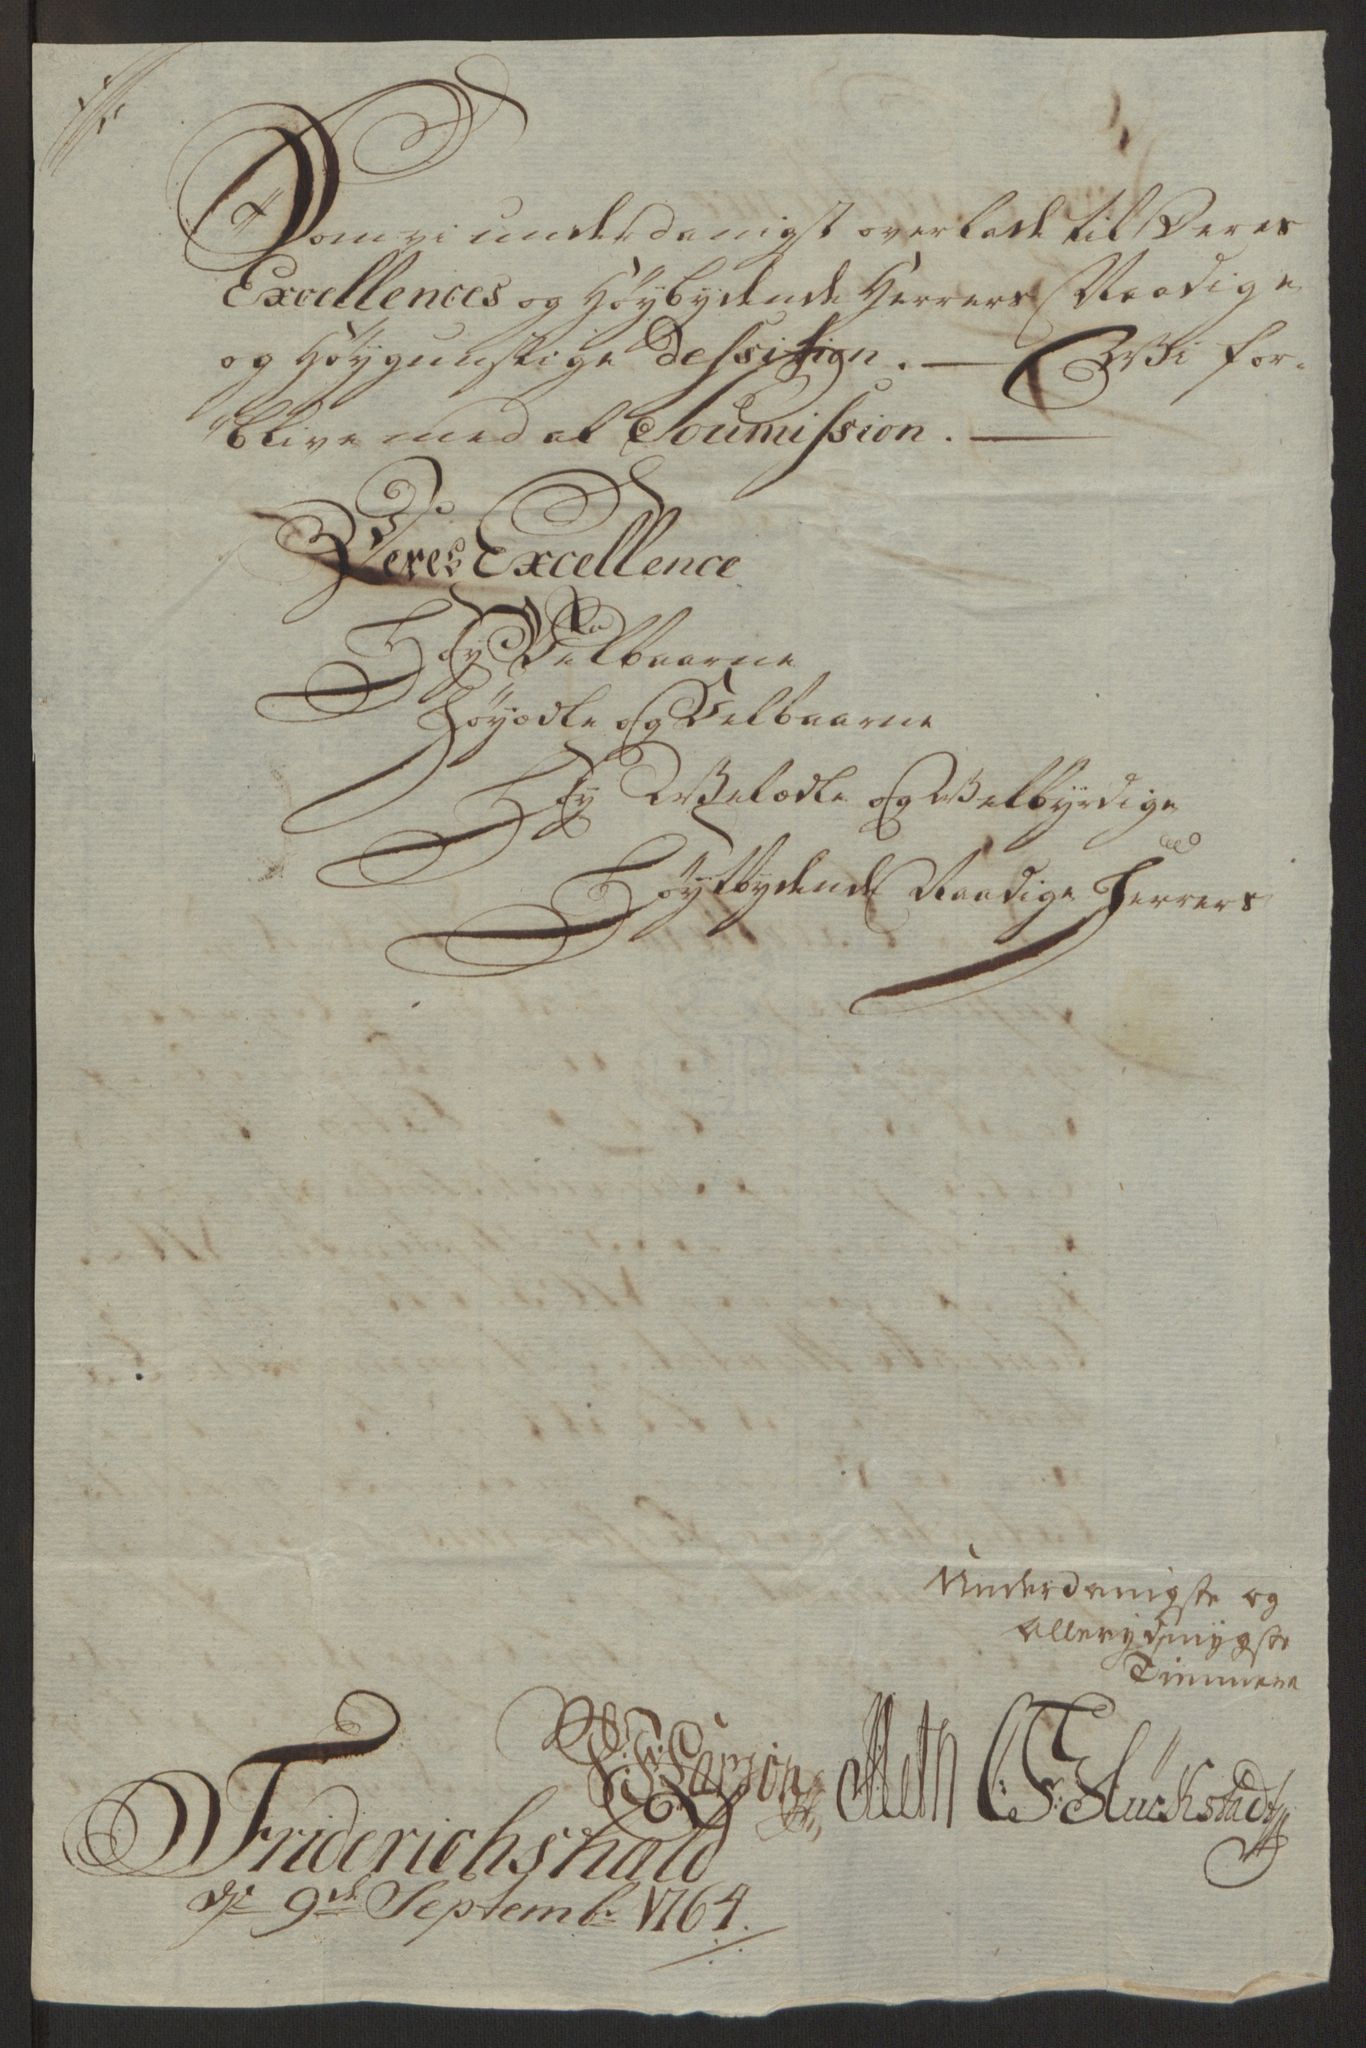 Som vi underdanigst overlade til Deres
Excellences og Höybydende Herrers Naadige
og Höygunstige Dessition. — Wi for-
blive med al Soumission. —
Deres Excellence
Höy Velbaarne
Höyædle og Velbaarne
Höy Welædle og Welbyrdige
Höytbydende Naadige Herrers
Underdanigste og
Allerydmygste
Tiennere
Carsön Meth C: F: Glückstadt
Friderichshald
de 9de Septembr 1764.